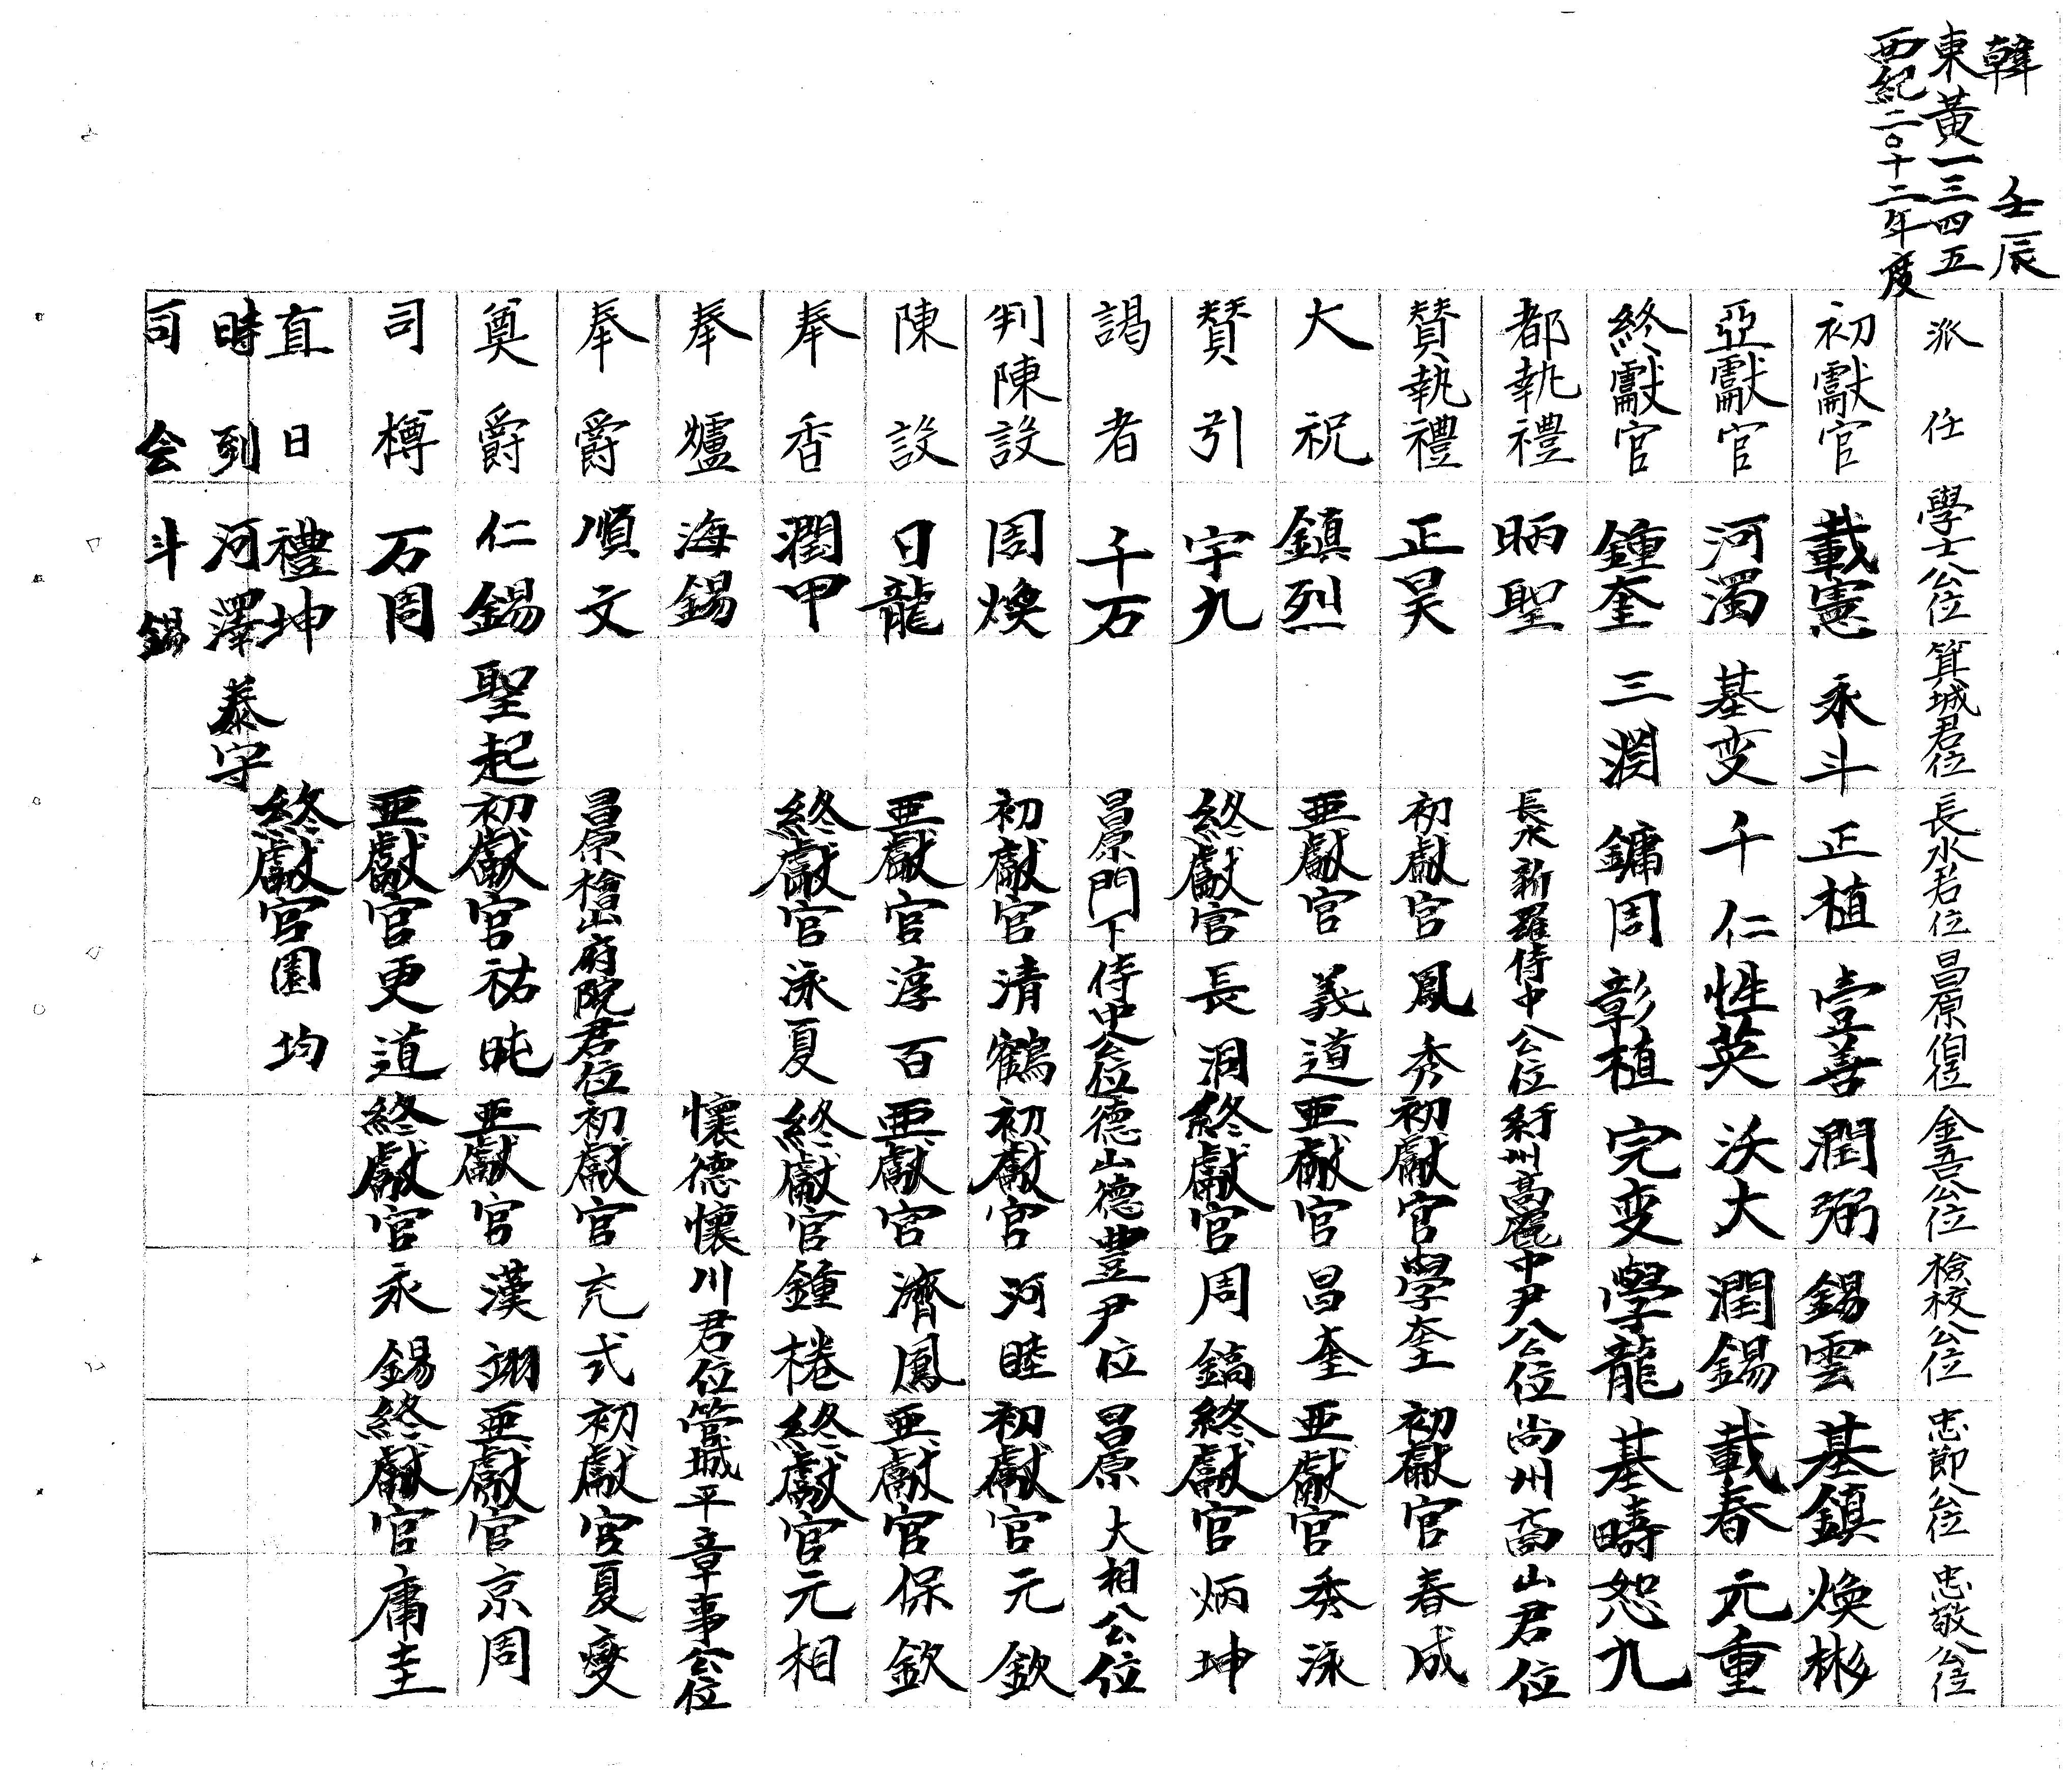 韓 壬辰
東黃一三四五
西紀二〇十二年度
派任 學士公位 箕城君位 長水君位 昌原伯位 金吾公位 檢校公位 忠節公位 忠敬公位
初獻官 載憲 永斗 正植 壹善 潤弼 錫雲 基鎮 煥彬
亞獻官 河濁 基変 千仁 性英 沃大 潤錫 載春 元重
終獻官 鍾奎 三潤 鏞周 彰植 完変 學龍 基疇 恕九
都執禮 昞聖 長水新羅侍中公位 衍州高麗中尹公位 尚州商山君位
賛執禮 正昊 初獻官 鳳秀 初獻官 學奎 初獻官 春成
大祝 鎮烈 亜獻官 義道 亜獻官 昌奎 亜獻官 秀泳
賛引 宇九 終獻官 長洞 終獻官 周鎬 終獻官 炳坤
謁者 千石 昌原門下侍中公位 德山德豊尹位 昌原大相公位
判陳設 周煥 初獻官 清鶴 初獻官 河睦 初獻官 元欽
陳設 日龍 亜獻官 淳百 亜獻官 濟鳳 亜獻官 保欽
奉香 潤甲 終獻官 泳夏 終獻官 鍾棬 終獻官 元相
奉爐 海錫 懷德懷川君位 管城平章事公位
奉爵 順文 昌原檜山府院君位 初獻官 充式 初獻官 夏燮
奠爵 仁錫 聖起 初獻官 祐旽 亜獻官 漢翊 亜獻官 京周
司樽 万周 亜獻官 更道 終獻官 永錫 終獻官 庸圭
直日 禮坤 終獻官 園均
時到 河澤 泰守
司会 斗錫